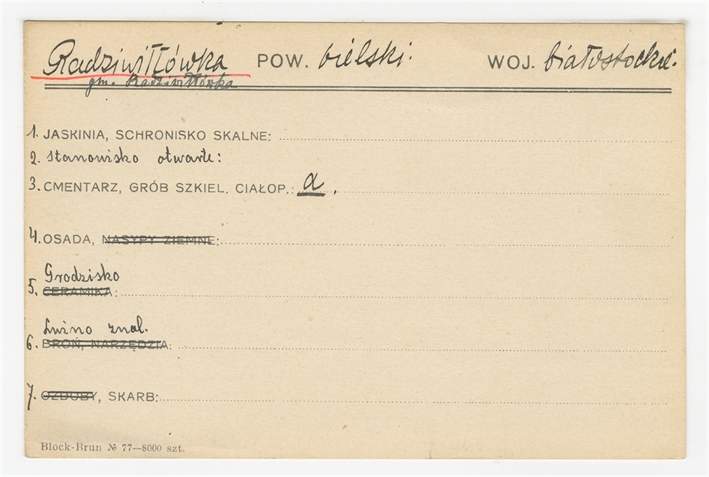 Radziwiłłówka POW. bielski. WOJ. białostockie.
gm. Radziwiłłówka
1. JASKINIA, SCHRONISKO SKALNE:
2. Stanowisko otwarte:
3. CMENTARZ, GRÓB SZKIEL. CIAŁOP.: a.
4. OSADA, NASYPY ZIEMNE:
Grodzisko
5. CERAMIKA:
Luźno znal.
6. BROŃ, NARZĘDZIA:
7. OZDOBY, SKARB:
Block-Brun № 77—8000 szt.